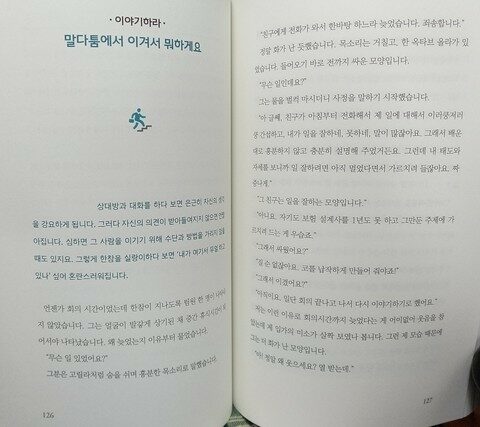 · 이야기하라 ·
말다툼에서 이겨서 뭐하게요
상대방과 대화를 하다 보면 은근히 자신의
을 강요하게 됩니다. 그러다 자신의 의견이 받아들여지지 않으면 언성이
높아집니다. 심하면 그 사람을 이기기 위해 수단과 방법을 가리지 않을
때도 있지요. 그렇게 한참을 실랑이하다 보면 '내가 여기서 무얼 하고
있나' 싶어 혼란스러워집니다.
언젠가 회의 시간이었는데 한참이 지나도록 팀원 한 명이 나타나
지 않았습니다. 그는 얼굴이 발갛게 상기된 채 중간 휴식시간이 되
어서야 나타났습니다. 왜 늦었는지 이유부터 물었습니다.
"무슨 일 있었어요?"
그분은 고릴라처럼 숨을 쉬며 흥분한 목소리로 말했습니다.
126
"친구에게 전화가 와서 한바탕 하느라 늦었습니다. 죄송합니다."
정말 화가 난 듯했습니다. 목소리는 거칠고, 한 옥타브 올라가 있
었습니다. 들어오기 바로 전까지 싸운 모양입니다.
"무슨 일인데요?"
그는 물을 벌컥 마시더니 사정을 말하기 시작했습니다.
"아 글쎄, 친구가 아침부터 전화해서 제 일에 대해서 이러쿵저러
쿵 간섭하고, 내가 일을 잘하네, 못하네, 말이 많잖아요. 그래서 배운
대로 흥분하지 않고 충분히 설명해 주었거든요. 그런데 내 태도와
자세를 보니까 일 잘하려면 아직 멀었다면서 가르치려 들잖아요. 짜
증나게."
"그 친구는 일을 잘하는 모양입니다."
"아니요. 자기도 보험 설계사를 1년도 못 하고 그만둔 주제에 가
르치려 드는 게 우습죠."
"그래서 싸웠어요?"
"길 순 없잖아요. 코를 납작하게 만들어 줘야죠!"
"그래서 이겼어요?"
"아직이요. 일단 회의 끝나고 나서 다시 이야기하기로 했어요."
저는 이런 이유로 회의시간까지 늦었다는 게 어이없어 웃음을 참
았는데 제 입가의 미소가 살짝 보였나 봅니다. 그런 제 모습 때문에
그는 더 화가 난 모양입니다.
"어! 정말 왜 웃으세요? 열 받는데."
127